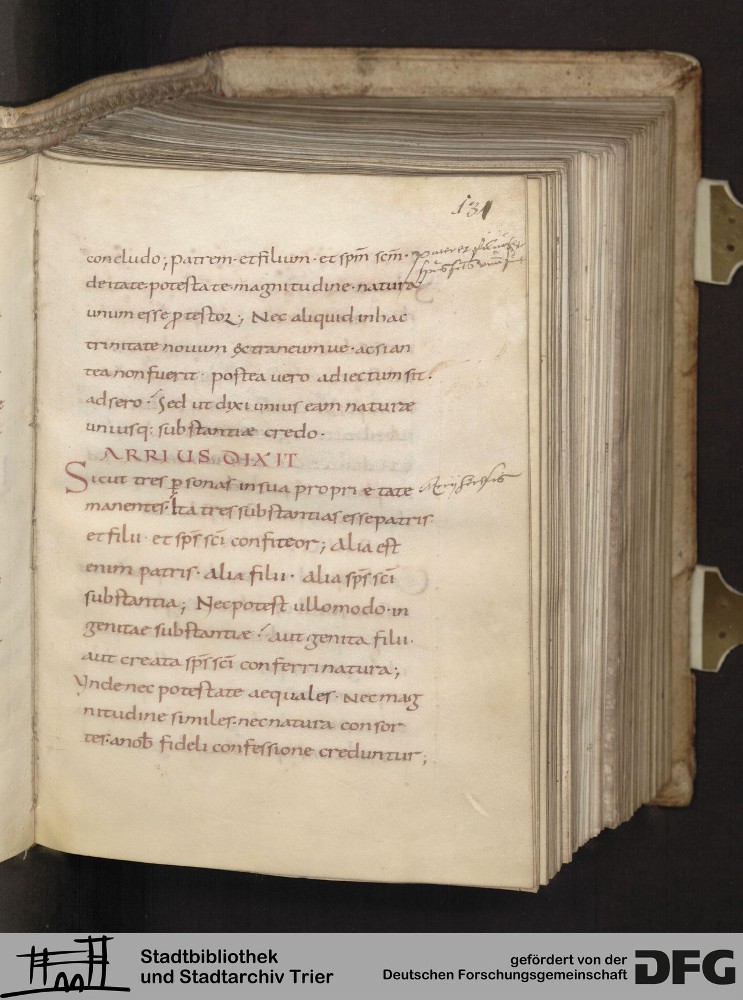 131
concludo; patrem· et filium· et spm̄ scm̄·
pater et filius et
sp̄us sc̄us unum
deitate· potestate· magnitudine· natura·
unum esse ꝓtestor; Nec aliquid in hac
trinitate novum extraneum ve· ac si an
tea non fuerit· postea uero adiectum sit·
adsero· Sed ut dixi unius eam naturæ
uniusq: substantiæ credo·
ARRIUS DIXIT
Sicut tres ꝑsonas in sua proprietate
manentes· Ita tres substantias esse patris·
et filii· et sp̄s sc̄i confiteor; Alia est
enim patris· Alia filii· Alia sp̄s sc̄i
substantia; Nec potest ullo modo· in
genitae substantiæ· aut genita filii·
aut creata sp̄s sc̄i conferri natura;
Unde nec potestate aequales· Nec mag
nitudine similes· nec natura consor
tes· a nob̄ fideli confessione creduntur;
Stadtbibliothek
und Stadtarchiv Trier
gefördert von der
Deutschen Forschungsgemeinschaft
DFG